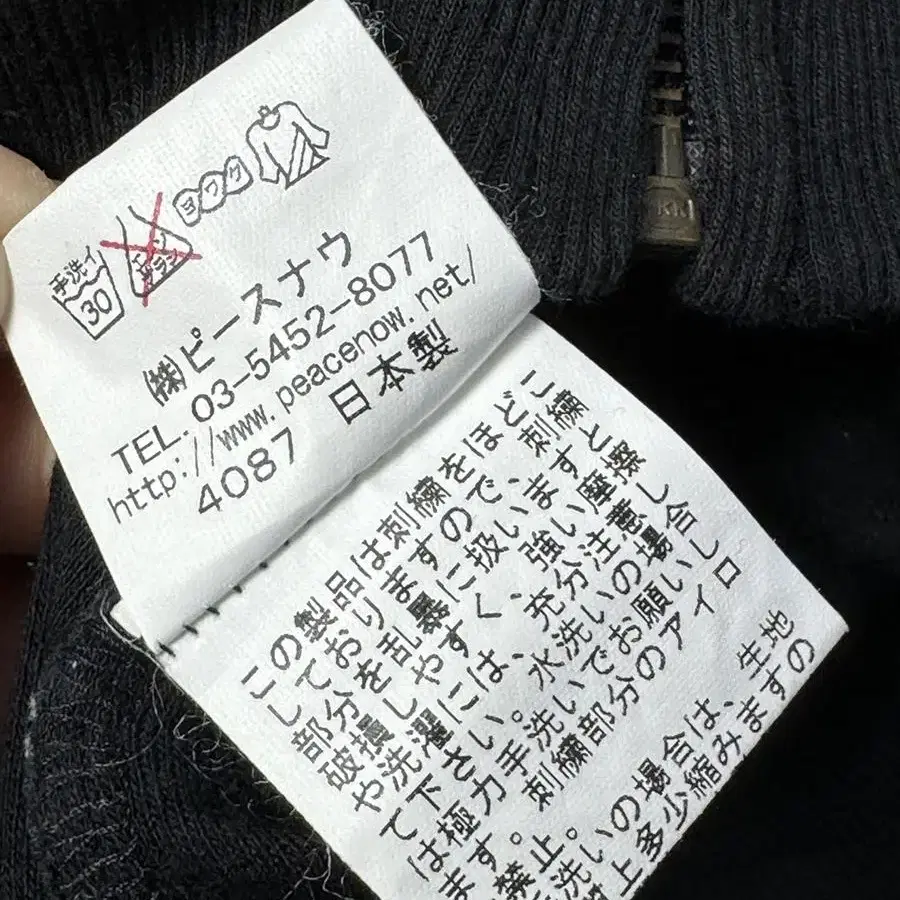 手洗イ
30
エンソ
サラシ
ヨワク
㈱ピースナウ
TEL. 03-5452-8077
http://www.peacenow.net/
4087 日本製
この製品は刺繍をほどこ
しておりますので、刺繍
部分を乱暴に扱いますと
破損しやすく、強い摩擦
や洗濯には、充分注意し
て下さい。水洗いの場合
は極力手洗いでお願いし
ます。刺繍部分のアイロ
禁止。
洗いの場合は、生地
上多少縮みますの